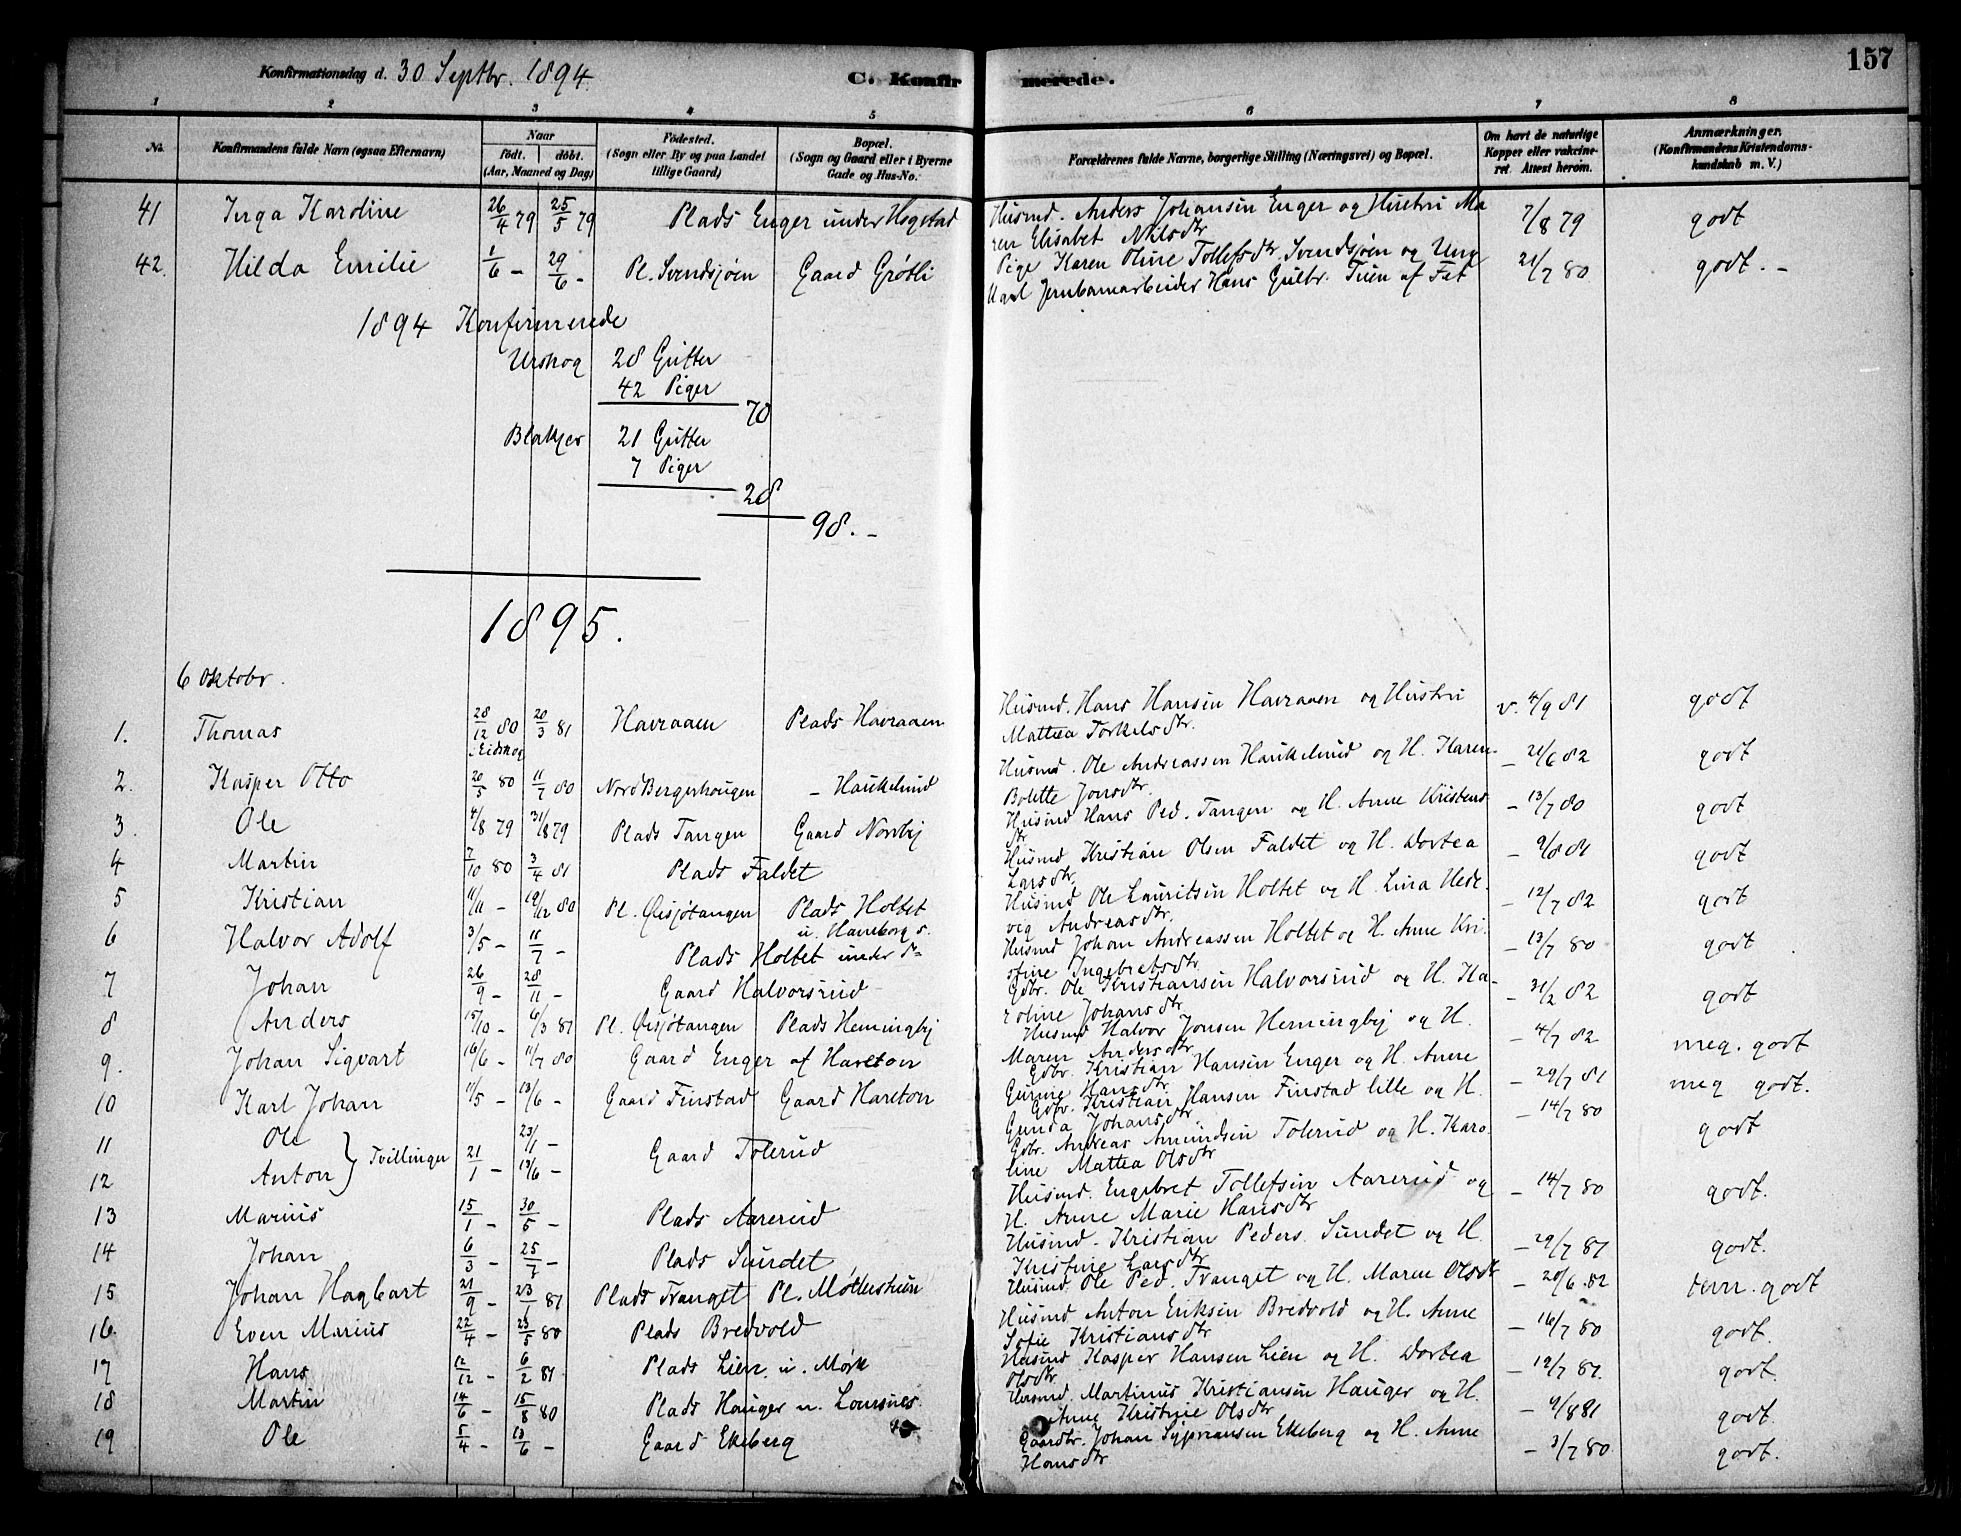 157
Konfirmationsdag d. 30 Septbr. 1894.
C. Konfirmerede.
1 2 3 4 5 6 7 8
No. Konfirmandens fulde Navn (ogsaa Efternavn) Naar født. døbt. (Aar, Maaned og Dag) Fødested. (Sogn eller By og paa Landet tillige Gaard) Bopæl. (Sogn og Gaard eller i Byerne Gade og Hus-No. Forældrenes fulde Navne, borgerlige Stilling (Næringsvei) og Bopæl. Om havt de naturlige Kopper eller vakcineret. Attest herom. Anmærkninger. (Konfirmandens Kristendomskundskab m. V.)
41 Inga Karoline 26/4 79 25/5 79 Plads Enger under Hogstad Husmd. Anders Johansen Enger og Hustru Ma
ren Elisabet Nilsdtr 7/8 79 godt
42. Hilda Emilie 1/6 - 29/6 - Pl. Svendsjøen Gaard Grøtli Pige Karen Oline Tollefsdtr. Svendsjøen og Ung
Karl Jernbanearbeider Hans Gulbr. Tuen af Fet 21/7 80 godt. -
1894 Konfirmerede
Urskog 28 Gutter
42 Piger
70
Blakjer 21 Gutter
7 Piger
28
98. -
1895.
6 Oktobr.
1. Thomas 28/12 80 i Eidskog 20/3 81 Havraaen Plads Havraaen Husmd. Hans Hansen Havraaen og Hustru
Mattea Torkelsdtr. v. 4/9 81 godt
2. Kasper Otto 20/5 80 11/7 80 Nord Bergerhougen - Haukelund Husmd. Ole Andreassen Haukelund og H. Karen
Bolette Jonsdtr. - 21/6 82 godt
3. Ole 4/8 79 31/8 79 Plads Tangen Gaard Nordby Husmd Hans Ped. Tangen og H. Anne Kristens
dtr. - 13/7 80 godt
4 Martin 7/10 80 3/4 81 Plads Faldet Husmd Kristian Olsen Faldet og H. Dortea
Larsdtr. - 9/8 81 godt
5 Kristian 11/11 - 19/12 80 Pl. Øisjøtangen Plads Holtet
u. Haneborg s. Husmd Ole Lauritsen Holtet og H. Lina Hede-
veg Andreasdtr. - 12/7 82 godt
6 Halvor Adolf 3/5 - 11/7 - Plads Holtet under Do Husmd Johan Andreassen Holtet og H. Anne Kri-
stine Ingebretsdtr - 13/7 80 godt
7 Johan 26/9 - 28/11 - Gaard Halvorsrud Gdbr. Ole Kristiansen Halvorsrud og H. Ka-
roline Johansdtr - 31/2 82 godt
8 Anders 15/10 - 6/3 81 Pl. Øisjøtangen Plads Hemingby Husmd Halvor Jonsen Hemingby og H.
Maren Andersdtr - 4/7 82 meg. godt
9. Johan Sigvart 16/6 - 11/7 80 Gaard Enger af Hareton Gdbr. Kristian Hansen Enger og H. Anne
Gurine Hansdtr - 29/7 81 meg godt.
10 Karl Johan 11/5 - 13/6 - Gaard Finstad Gaard Hareton Gdbr. Kristian Hansen Finstad lille og H.
Gunda Johansdtr - 14/7 80 godt
11 Ole 23/1 - Gdbr. Andreas Amundsen Tolerud og H. Karo
} Tvillinger 21/1 - Gaard Tolerud
12 Anton 13/6 - line Mattea Olsdtr
13 Marius 15/1 - 30/5 - Plads Aarerud Husmd. Engebret Tollefsen Aarerud og
H. Anne Marie Hansdtr - 14/7 80 godt.
14 Johan 6/3 - 25/7 - Plads Sundet Husmd. Kristian Peders. Sundet og H.
Kristine Larsdtr - 29/7 81 godt.
15 Johan Hagbart 21/9 - 23/1 81 Plads Tranget Pl. Møllerstuen Husmd. Ole Ped. Tranget og H. Maren Olsdtr - 20/6 82 tem. godt
16. Even Marius 22/4 - 23/5 80 Plads Bredvold Husmd Anton Eriksen Bredvold og H. Anne
Sofie Kristiansdtr - 16/7 80 godt.
17 Hans 12/12 - 6/2 81 Plads Lien u. Mørk Husmd. Kasper Hansen Lien og H. Dortea
Olsdtr - 12/7 81. godt.
18 Martin 14/6 - 15/8 80 Plads Hauger u. Lomsnes. Husmd. Martinus Kristiansen Hauger og H.
Anne Kristine Olsdtr - 9/8 81 godt.
19 Ole 5/4 - 13/6 - Gaard Ekeberg Gaardbr. Johan Sypriansen Ekeberg og H. Anne
Hansdtr - 3/7 80 godt.